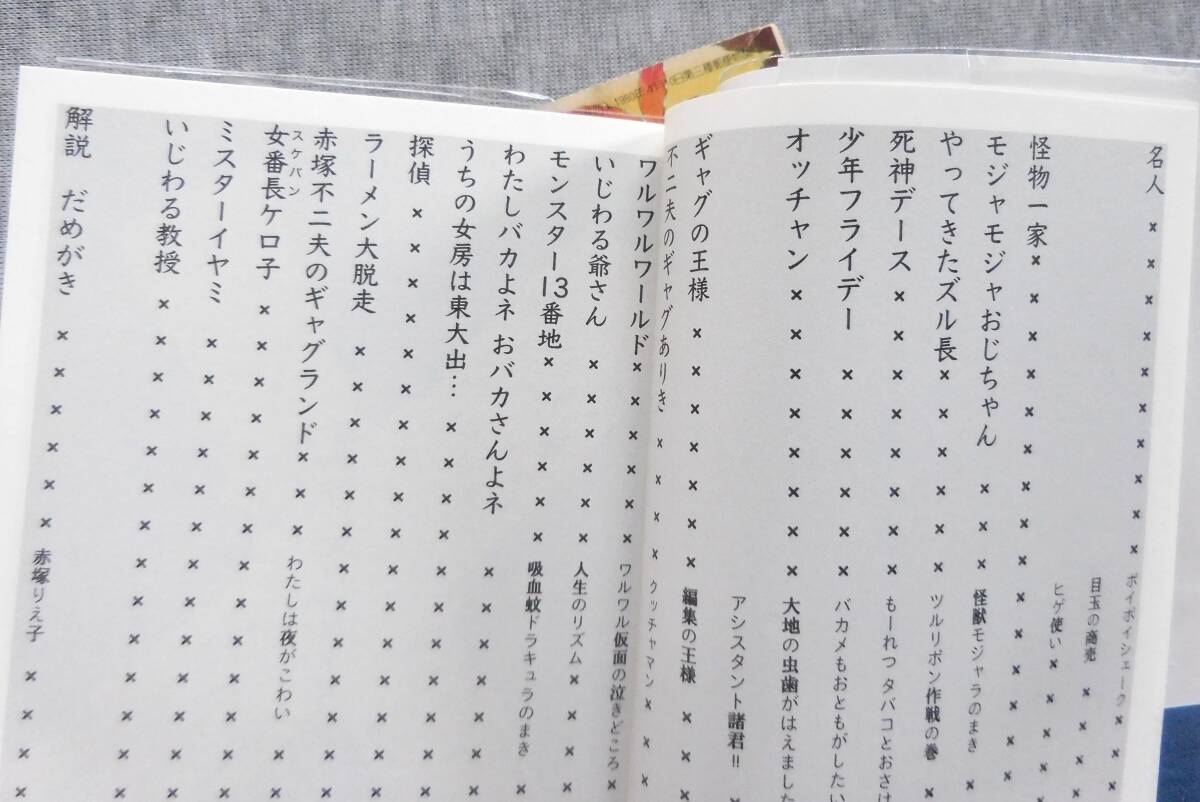 名人 × × × × × × × × × ポイポイシェーク × ×
目玉の商売 × × ×
ヒゲ使い × × × ×
怪物一家 × × × × × × × × × × × × × ×
モジャモジャおじちゃん × × 怪獣モジャラのまき ×
やってきたズル長 × × × × × × ツルリポン作戦の巻 ×
死神デース × × × × × × × × もーれつタバコとおさけ
少年フライデー × × × × × × バカメもおともがしたい
オッチャン × × × × × × × × 大地の虫歯がはえました
アシスタント諸君!! ×
ギャグの王様 × × × × × × × 編集の王様 × × ×
不二夫のギャグありき × × × × ウッチャマン × × × ×
ワルワルワールド × × × × × ワルワル仮面の泣きどころ ×
いじわる爺さん × × × × × × 人生のリズム × × × ×
モンスター13番地 × × × × × × 吸血蚊ドラキュラのまき ×
わたしバカよネ おバカさんよネ × × × × × × ×
うちの女房は東大出… × × × × × × × × × × ×
探偵 × × × × × × × × × × × × × × × ×
ラーメン大脱走 × × × × × × × × × × × × ×
赤塚不二夫のギャグランド × × × わたしは夜がこわい × ×
女番長ケロ子 × × × × × × × × × × × × × ×
スケバン
ミスターイヤミ × × × × × × × × × × × × ×
いじわる教授 × × × × × × × × × × × × × ×
解説 だめがき × × × × × × 赤塚りえ子 × × × ×